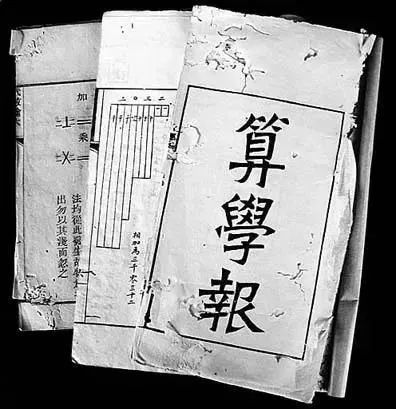 算學報
二〇三二
相加為二千零三十二
加
乘
法均從此
出勿以其淺而忽之